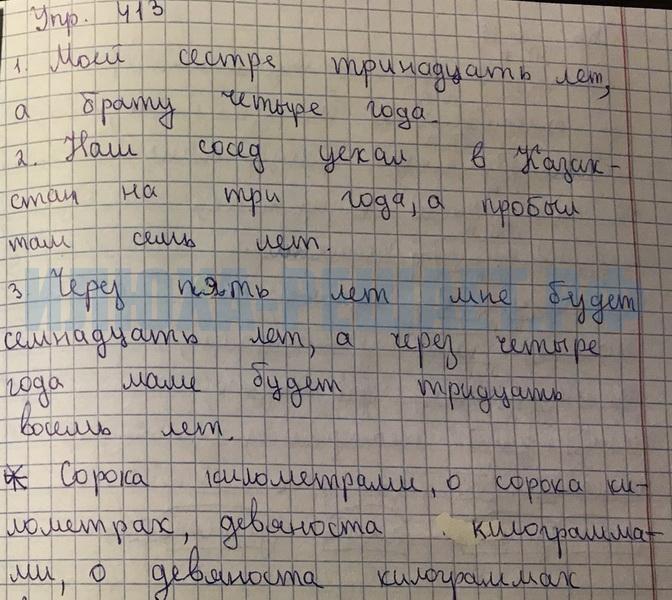 Упр. 413
1. Моей сестре тринадцать лет,
а брату четыре года.
2. Наш сосед уехал в Казах-
стан на три года, а пробыл
там семь лет.
3. Через пять лет мне будет
семнадцать лет, а через четыре
года маме будет тридцать
восемь лет.
* Сорока километрами, о сорока ки-
лометрах, девяноста килограмма-
ми, о девяноста килограммах